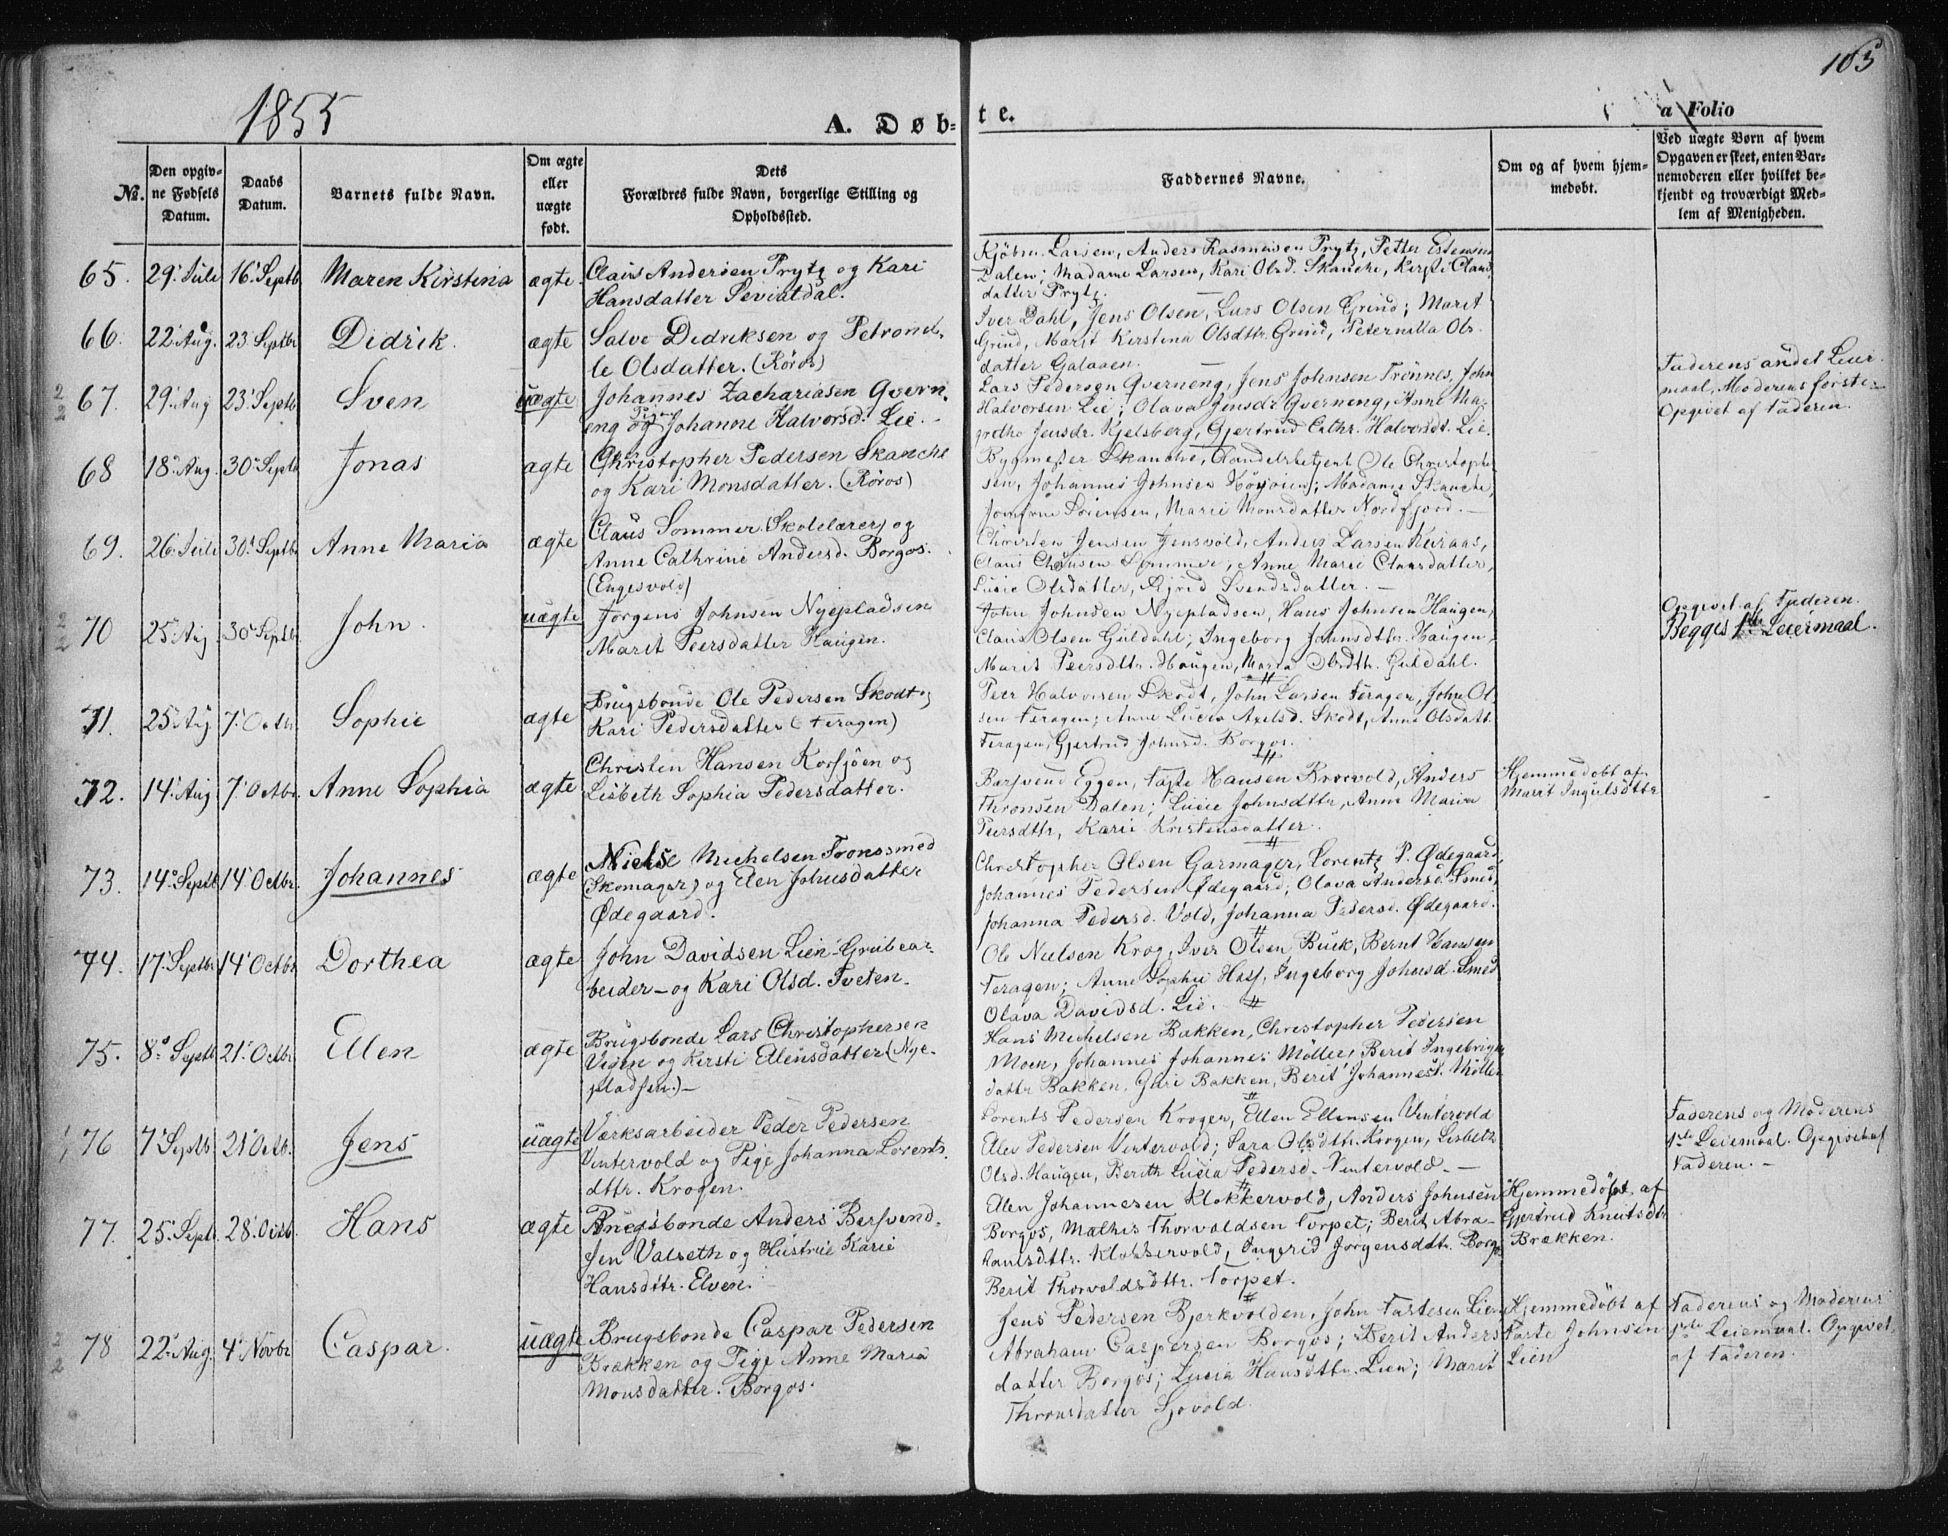 105
1855
A. Døb- te.
a Folio
№.
Den opgivne Fødsels Datum.
Daabs Datum.
Barnets fulde Navn.
Om ægte eller uægte født.
Dets Forældres fulde Navn, borgerlige Stilling og Opholdssted.
Faddernes Navne.
Om og af hvem hjemmedøbt.
Ved uægte Børn af hvem Opgaven er skeet, enten Barnemoderen eller hvilket bekjendt og troværdigt Medlem af Menigheden.
65. 29' Juli 16' Septb. Maren Kirstina ægte.
Claus Andersen Prytz og Kari
Hansdatter Seviatdal.
Kjöbm. Larsen, Anders Rasmusen Prytz, Petter Estensen
Dalen; Madame Larsen, Kari Olsd. Skancke, Kirsti Claus
datter Prytz.
66. 22' Aug. 23' Septbr Didrik. ægte
Salve Dedriksen og Petronel-
le Olsdatter. (Röros)
Iver Dahl, Jens Olsen, Lars Olsen Grind; Marit
Grind, Marit Kirstina Olsdttr. Grind, Peternilla Ols-
datter Galaaen.
67. 29' Aug 23' Septb. Sven uægte
Johannes Zachariasen Qvern-
eng og Pige Johanne Halvorsd. Lie.
Lars Pedersen Qverneng, Jens Johnsen Trönnes, John
Halvorsen Lie; Olava Jensdr Qverneng, Anne Ma-
grethe Jensdr. Kjelsberg, Gjertrud Cathr. Halvorsdt. Lie.
Faderens andet Leier-
maal, Moderens förste.
Opgivet af Faderen.
68 18' Aug. 30' Septb Jonas ægte
Christopher Pedersen Skancke
og Kari Monsdatter. (Röros)
Bygmester Skancke, Handelsbetjent Ole Christophe
sen, Johannes Johnsen Höyoien; Madame Skancke,
Jomfrue Sörensen, Marie Monsdatter Nordfjord.
69. 26' Juli 30' Septbr Anne Maria ægte
Claus Sommer (Skolelærer) og
Anne Cathrine Andersd. Borgos.
(Engesvold)
Christen Jensen Jensvold, Anders Larsen Kuraas,
Claus Clausen Sommer, Anne Marie Clausdatter,
Lucie Olsdatter, Sigrid Svendsdatter.
70 25' Aug. 30' Septb. John. uægte
Jörgens Johnsen Nyepladsen
Marit Peersdatter Haugen.
John Johnsen Nyepladsen, Hans Johnsen Haugen,
Claus Olsen Guldahl; Ingeborg Johnsdttr. Haugen,
Marit Peersdttr. Haugen, Maria Olsdttr. Guldahl.
Opgivet af Faderen.
Begges 1ste Leiermaal.
71. 25' Aug 7' Octbr. Sophie ægte
Brugsbonde Ole Pedersen Skodt og
Kari Pedersdatter (Feragen)
Peer Halvorsen Skodt, John Larsen Feragen, John Ol-
sen Feragen; Anne Lucia Axelsd. Skodt, Anne Olsdatt.
Feragen, Gjertrud Johnsd. Borgos.
72. 14' Aug 7' Octbr. Anne Sophia ægte
Christen Hansen Korssjöen og
Lisbeth Sophia Pedersdatter.
Barsvend Eggen, Faste Hansen Brovold, Anders
Thronsen Dalen; Lucie Johnsdttr, Anne Maria
Peersdttr, Karie Kristensdatter.
Hjemmedøbt af
Marit Ingulsdttr
73. 14' Septb 14' Octbr. Johannes ægte
Niels Michelsen Tronssmed
(Skomager) og Elen Johnsdatter
Ødegaard.
Christopher Olsen Garmager, Lorentz P. Ødegaard,
Johannes Pedersen Ødegaard; Olava Andersd. Smed,
Johanna Pedersd. Vold, Johanna Pedersd. Ødegaard.
74. 17' Septbr 14' Octbr Dorthea ægte
John Davidsen Lien - Grubear-
beider - og Kari Olsd. Tveten.
Ole Nielsen Krog, Iver Olsen Buck, Bernt Hansen
Feragen; Anne Sophie Hass, Ingeborg Johnsd. Smed
Olava Davidsd. Lie.
75. 8' Septb 21' Octbr Ellen ægte
Brugsbonde Lars Christophersen
Vigen og Kirsti Elensdatter (Nye-
pladsen.)
Hans Michelsen Bakken, Christopher Pedersen
Moen, Johannes Johannes Möller, Berit Ingebrigts
dattr Bakken, Guri Bakken, Berit Johannesd. Möller
76 7' Septb. 21' Octb. Jens uægte
Værksarbeider Peder Pedersen
Vintervold og Pige Johanna Lorents-
dttr. Krogen.
Lorents Pedersen Kroger, Ellen Ellensen Vintervold
Elev Pedersen Vintervold; Sara Olsdttr. Krogen, Lisbeth
Olsd. Haugen, Berith Lucia Pedersd. Vintervold.
Faderens og Moderens
1ste Leiermaal. Opgivet af
Faderen.
77. 25' Sept. 28' Octb. Hans ægte
Brugsbonde Anders Barsvend-
sen Valseth og Hustrue Karie
Hansdttr. Elven.
Elen Johannesen Klokkervold, Anders Johnsen
Borgos, Mathis Thorvaldsen Torpet; Berit Abra-
hamsdttr. Klokkervold, Ingerid Jörgensdttr. Borgos
Berit Thorvaldsdttr. Torpet.
Hjemmedøbt af
Gjertrud Knutsdtr
Brækken.
78 22' Aug. 4' Novbr Caspar. uægte
Brugsbonde Caspar Pedersen
Brækken og Pige Anne Maria
Monsdatter Borgos.
Jens Pedersen Bjerkvolden, John Fastesen Lien
Abraham Caspersen Borgos; Berit Anders
datter Borgos; Lucia Hansdttr. Lien; Marit
Thronsdatter Sjovold.
Hjemmedøbt af
Faste Johnsen
Lien
Faderens og Moderens
1ste Leiermaal. Opgivet
af Faderen.